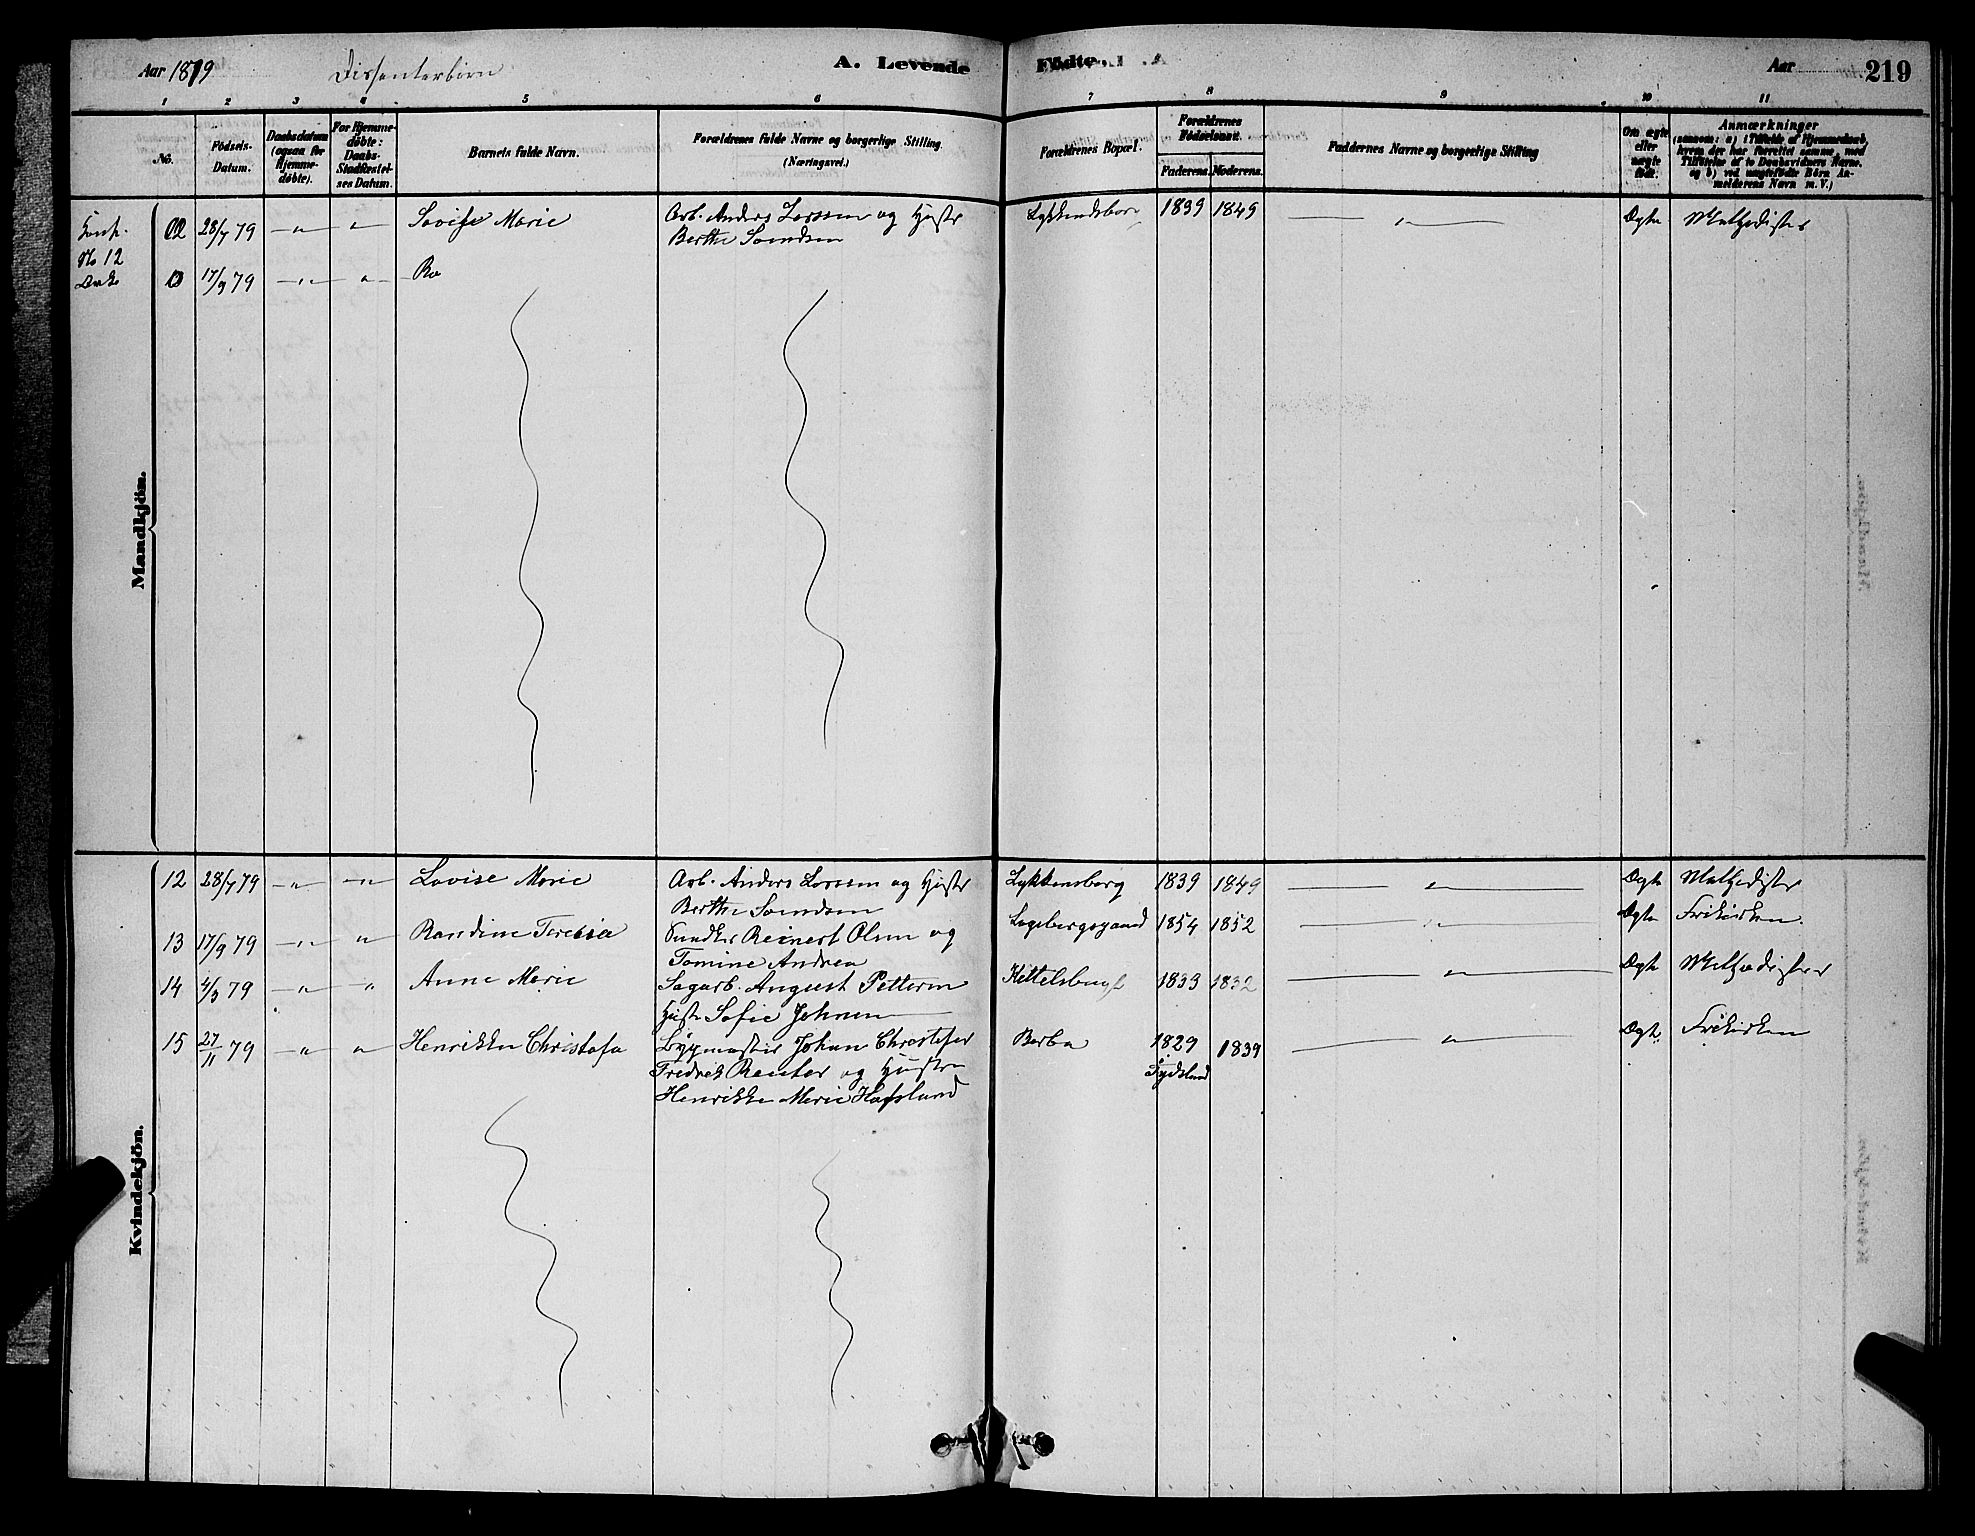 Aar 1879 Dissenterbörn A. Levende Födte. Aar 219
1 2 3 4 5 6 7 8 9 10 11
No.
Födsels-Datum.
Daabsdatum (ogsaa for Hjemme-döbte).
For Hjemme-döbte: Daabs-Stadfæstelses Datum.
Barnets fulde Navn.
Forældrenes fulde Navne og borgerlige Stilling. (Næringsvei.)
Forældrenes Bopæl.
Forældrenes Födselsaar. Faderens. Moderens.
Faddernes Navne og borgerlige Stilling
Om ægte eller uægte född.
Anmærkninger
Mandkjön.
28/7 79 Lovise Marie Arb. Anders Larssen og Hustr 1839 1849 Ægte Methodister
Berthe Svendsen
No 12
17/9 79 Ra
Kvindekjön.
12 28/7 79 Lovise Marie Arb. Anders Larssen og Hustr Lykkensborg 1839 1849 Ægte Methodister
Berthe Svendsen
13 17/9 79 Randine Teresia Reinert Olsen og 1854 1852 Ægte Frikirken.
Tomine Andrea
14 4/9 79 Anne Marie Sagarb. August Pettersen 1839 1832 Ægte Methodister
Hustr Sofie Johnsen
15 27/11 79 Henrikke Christofa Bygmester Johan Christofer Berba 1829 1839 Ægte. Frikirken
Fredrik Reuter og Hustru Tydskland
Henrikke Marie Hafslund